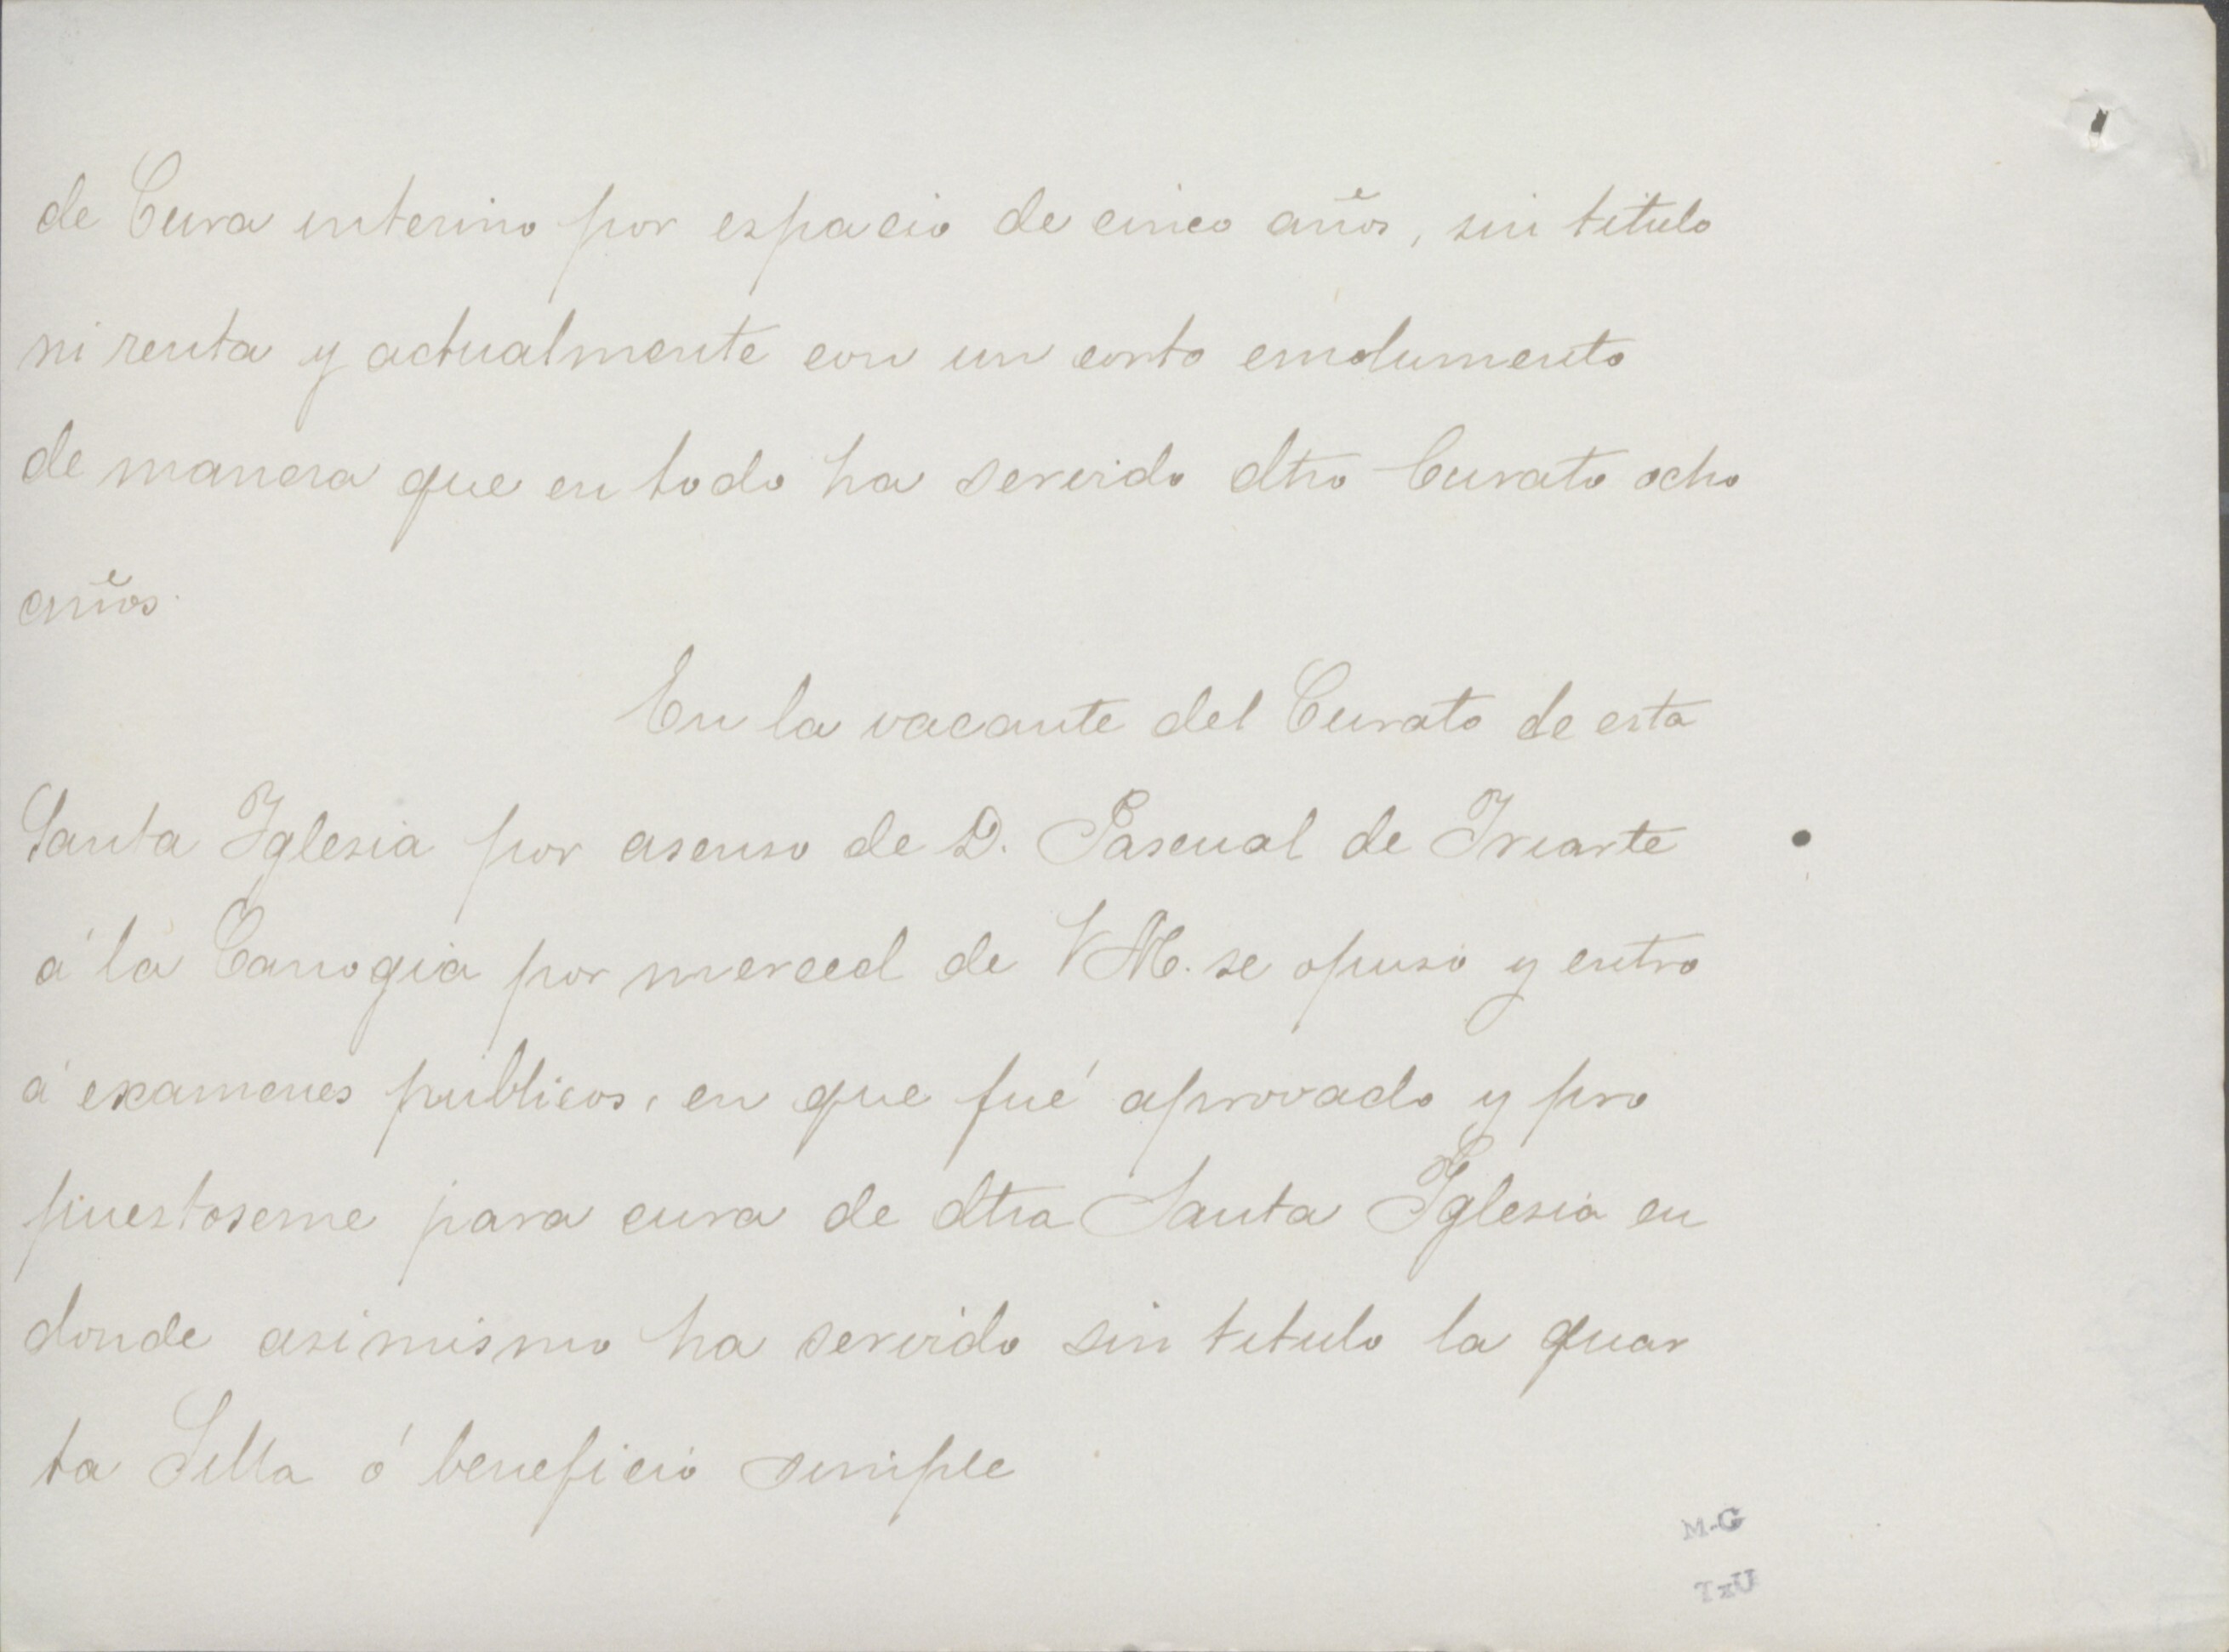 de Cura interino por espacio de cinco años, sin titulo
ni renta y actualmente con un corto emolumento
de manera que en todo ha servido dho Curato ocho
años.
En la vacante del Curato de esta
Santa Iglesia por asenso de D. Pascual de Iriarte
á la Canogia por merced de VM. se opuso y entro
á examenes publicos, en que fué aprovado y pro
puestoseme para cura de dha Santa Iglesia en
donde asimismo ha servido sin titulo la quar
ta Silla ó beneficio simple
M-G
TxU